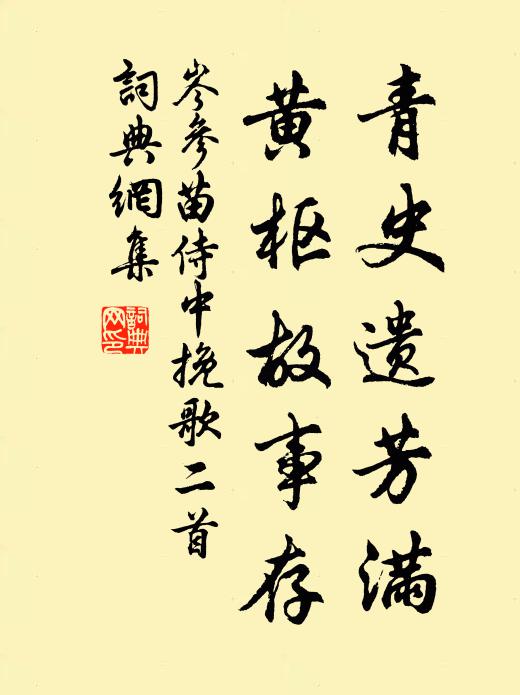 青史遗芳满
黄枢故事存
岑参苗侍中挽歌二首
詞典網集
詞典
网印